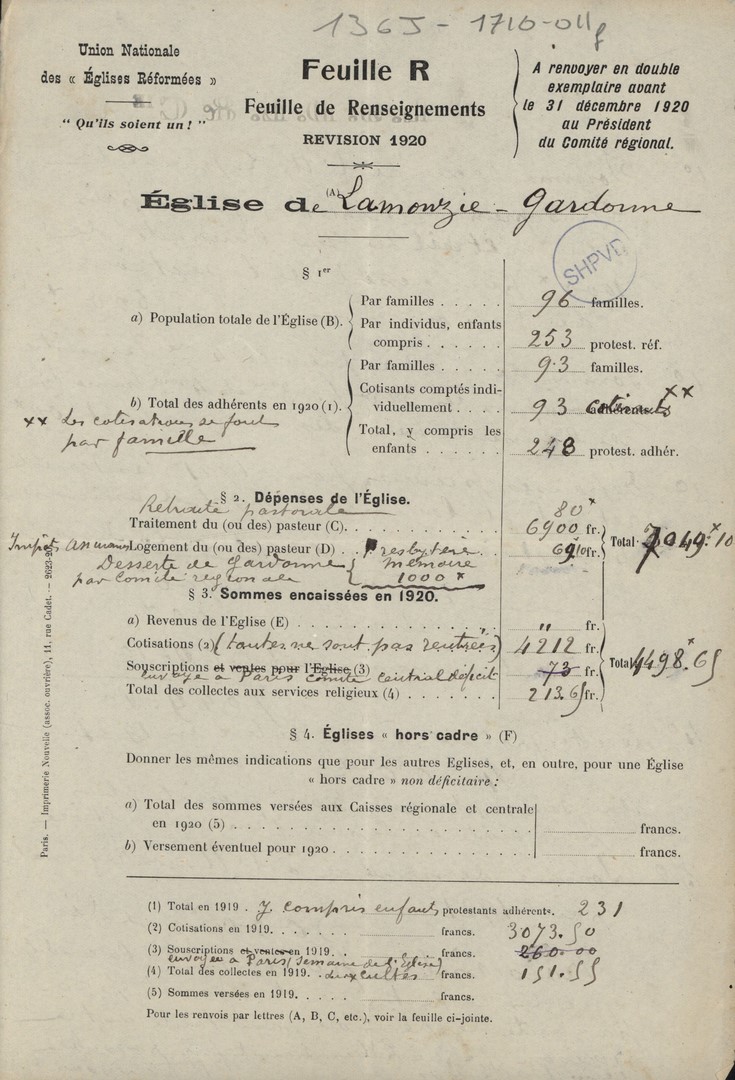 1365 - 1710-011f
Union Nationale
des « Églises Réformées »
" Qu'ils soient un ! "
Feuille R
Feuille de Renseignements
REVISION 1920
A renvoyer en double
exemplaire avant
le 31 décembre 1920
au Président
du Comité régional.
Église de (A) Lamonzie - Gardonne
SHPVD
§ 1er
a) Population totale de l'Église (B).
Par familles . . . . . 96 familles.
Par individus, enfants
compris . . . . . . 253 protest. réf.
b) Total des adhérents en 1920 (1).
Par familles . . . . . 93 familles.
Cotisants comptés indi-
viduellement . . . . 93 cotisants xx
Total, y compris les
enfants . . . . . . 248 protest. adhér.
xx Les cotisations se font
par famille
§ 2. Dépenses de l'Église.
Retraite pastorale 80 x
Traitement du (ou des) pasteur (C). 6900 fr.
Impôts Logement du (ou des) pasteur (D) . . Presbytère 69.10 fr. Total 7049 x 10
Desserte de Gardonne mémoire
par comité régional 1000 x
§ 3. Sommes encaissées en 1920.
a) Revenus de l'Église (E) . . . . . . . . . " fr.
Cotisations (2) (toutes ne sont pas rentrées) 4212 fr.
Souscriptions et ventes pour l'Église (3) 73 fr. Total 4498 x 65
envoyé à Paris comité central déficit
Total des collectes aux services religieux (4) . . . . . . . 213.65 fr.
§ 4. Églises « hors cadre » (F)
Donner les mêmes indications que pour les autres Eglises, et, en outre, pour une Église
« hors cadre » non déficitaire :
a) Total des sommes versées aux Caisses régionale et centrale
en 1920 (5) . . . . . . . . . . francs.
b) Versement éventuel pour 1920 . . . . . . . . . . francs.
(1) Total en 1919 . y compris enfants protestants adhérents. 231
(2) Cotisations en 1919. . . . . . . francs. 3073.50
(3) Souscriptions et ventes en 1919. . . . francs. 260.00
envoyée à Paris (semaine de l'Eglise)
(4) Total des collectes en 1919. . aux cultes francs. 151.55
(5) Sommes versées en 1919. . . . . francs.
Pour les renvois par lettres (A, B, C, etc.), voir la feuille ci-jointe.
Paris. — Imprimerie Nouvelle (assoc. ouvrière), 11, rue Cadet. — 2623-20